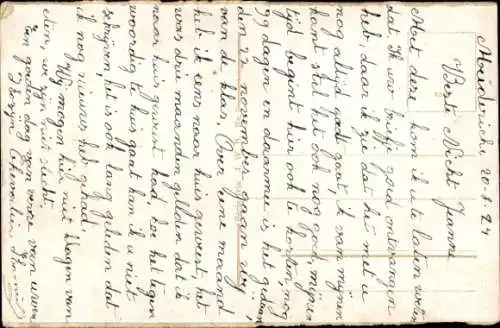 Moederscke 20-8-24
Beste Nicht Jeanne
Met deze kom ik u te laten weten
dat ik uw briefje goed ontvangen
heb, daar ik zie dat het met u
nog altijd goed gaat, ik van mijnen
kant stel het ook nog goed, mijnen
tijd begint hier ook te korten, nog
99 dagen en daarmee is het gedaan
den 27 november gaan wij,
van de klas. Over eene maand
heb ik eens naar huis geweest, het
was drie maanden gelden da ik
naar huis geweest had, hoe het tegen-
woordig te huis gaat kan ik u niet
schrijven, het is ook lang gelden dat
ik nog nieuws heb gehad.
Wij mogen hier niet klagen van
eten, wij zijn niet slecht.
Een goeden dag van verre van uwen
Kozijn